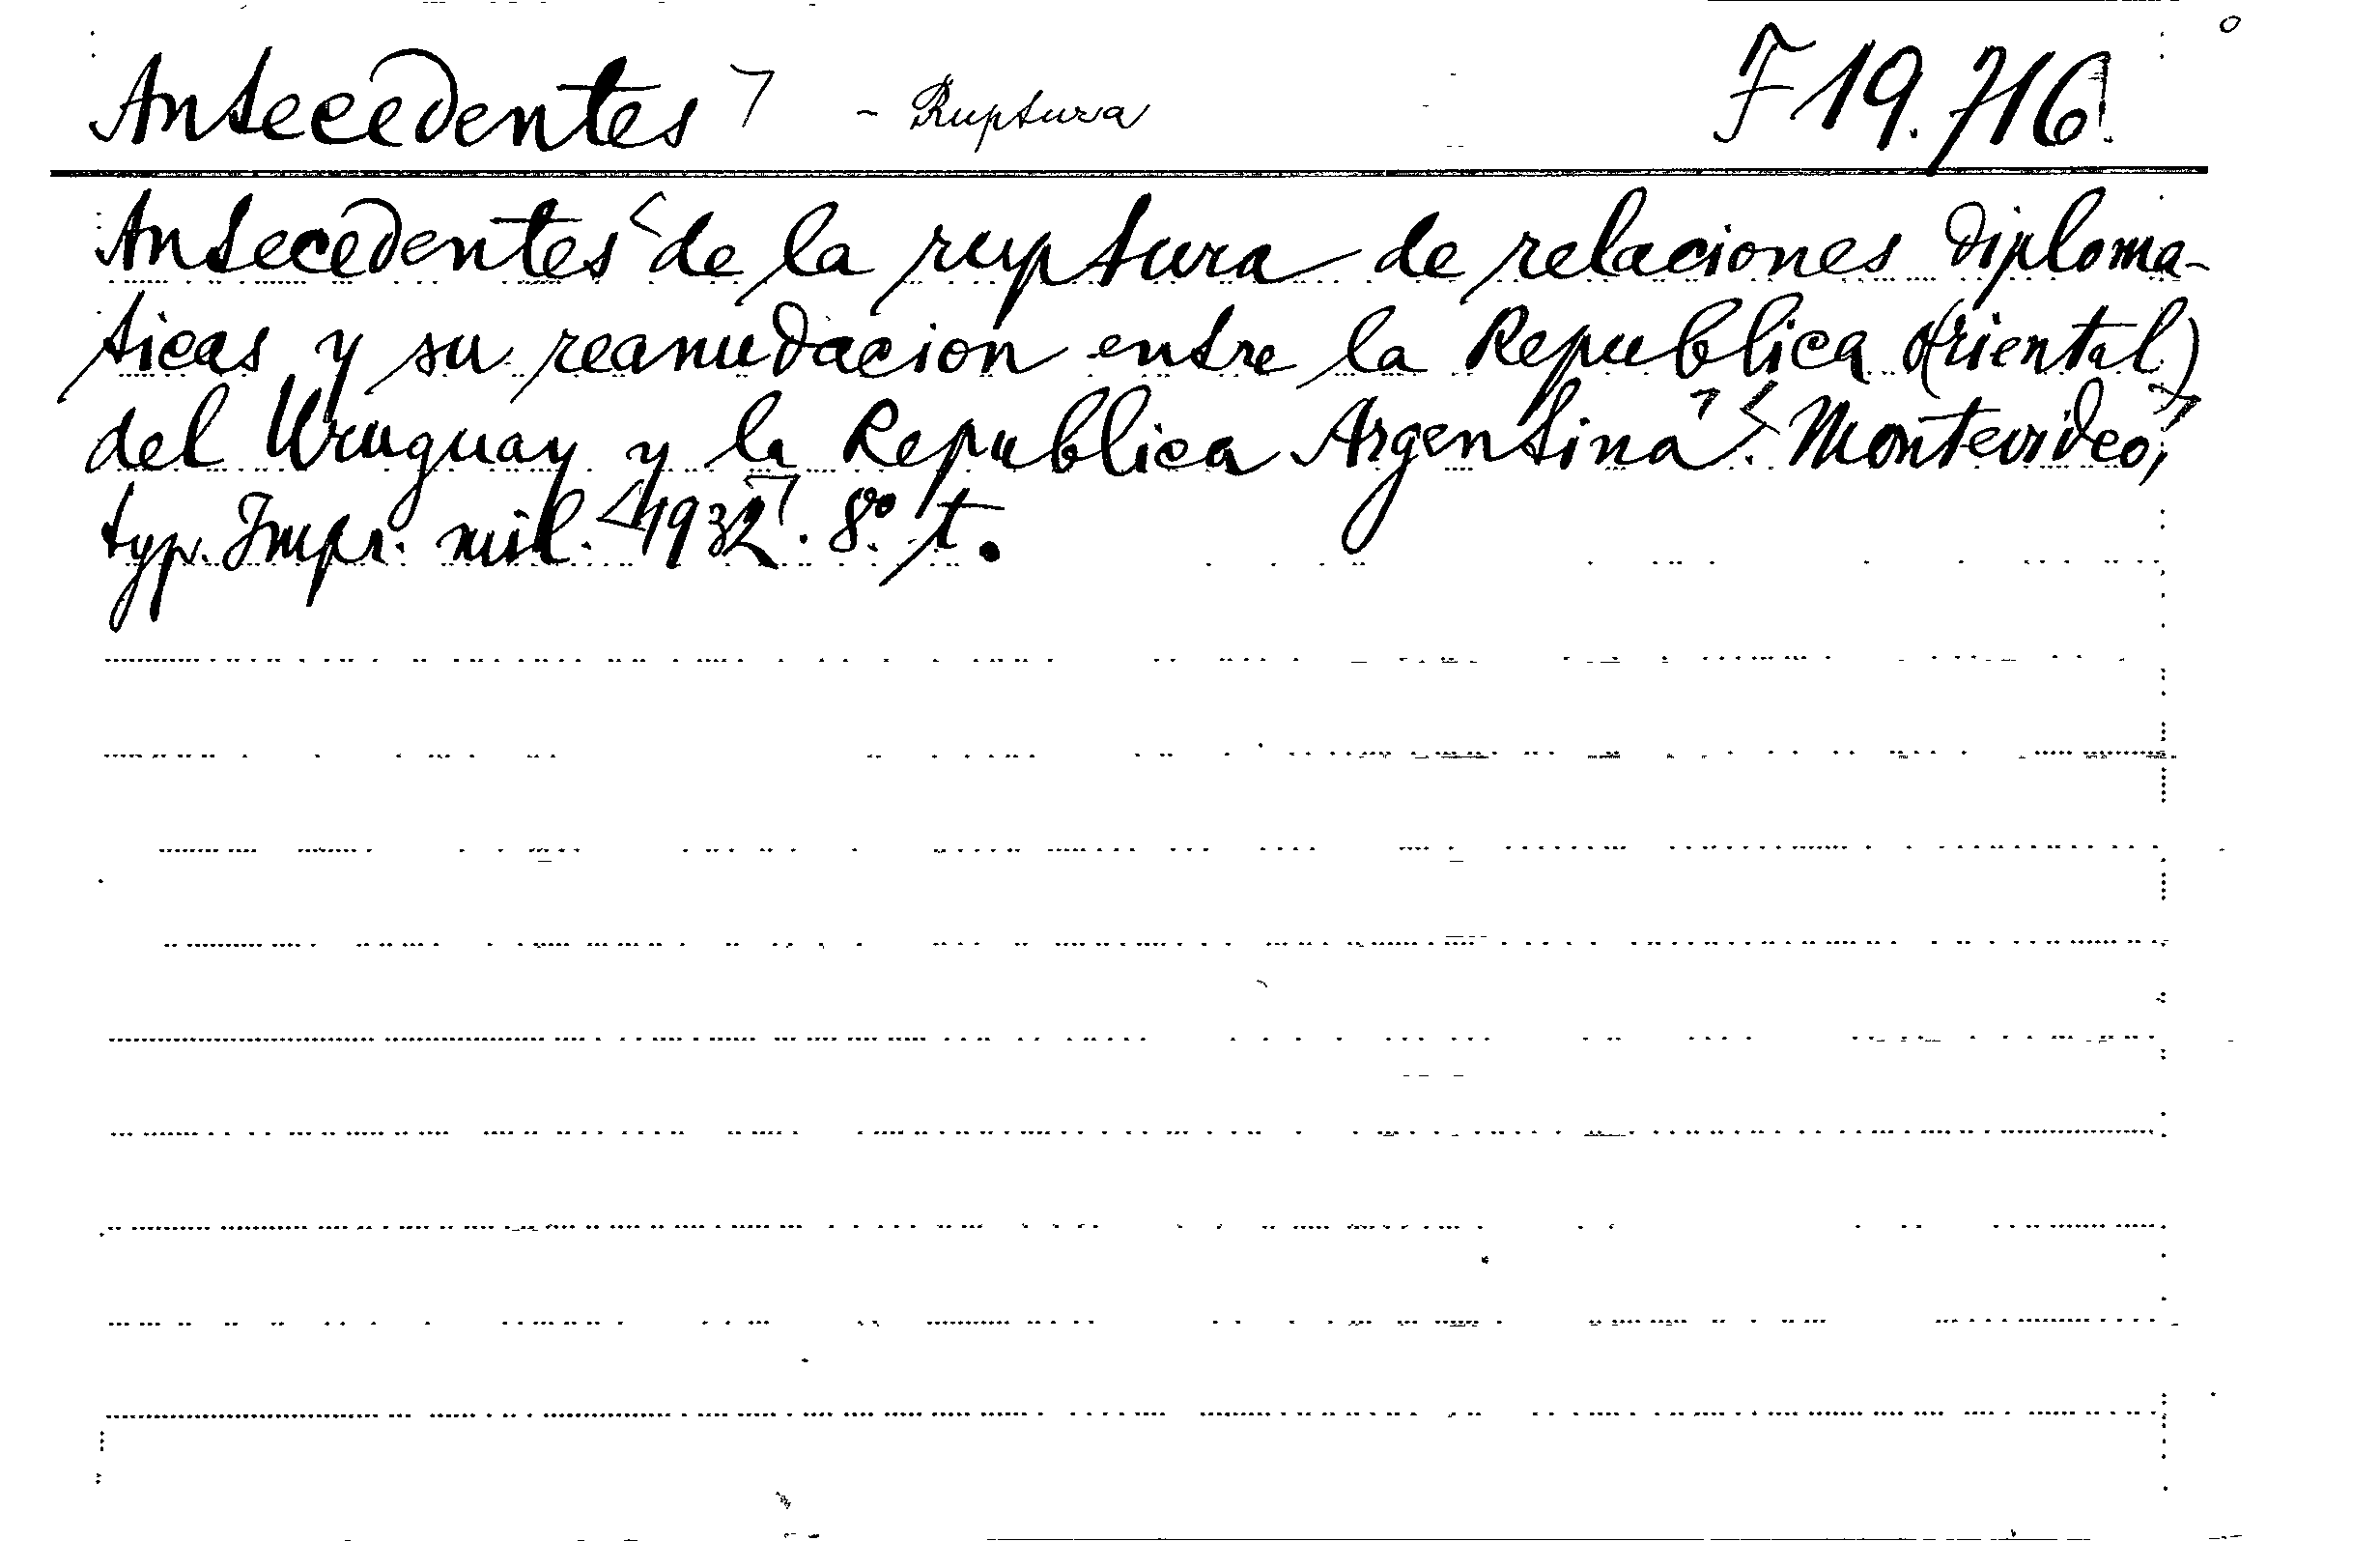 Antecedentes - Ruptura F 19.716.
Antecedentes de la ruptura de relaciones diploma-
ticas y su reanudacion entre la Republica Oriental
del Uruguay y la Republica Argentina. Montevideo,
typ. Impr. mil. 1932. 8° t.